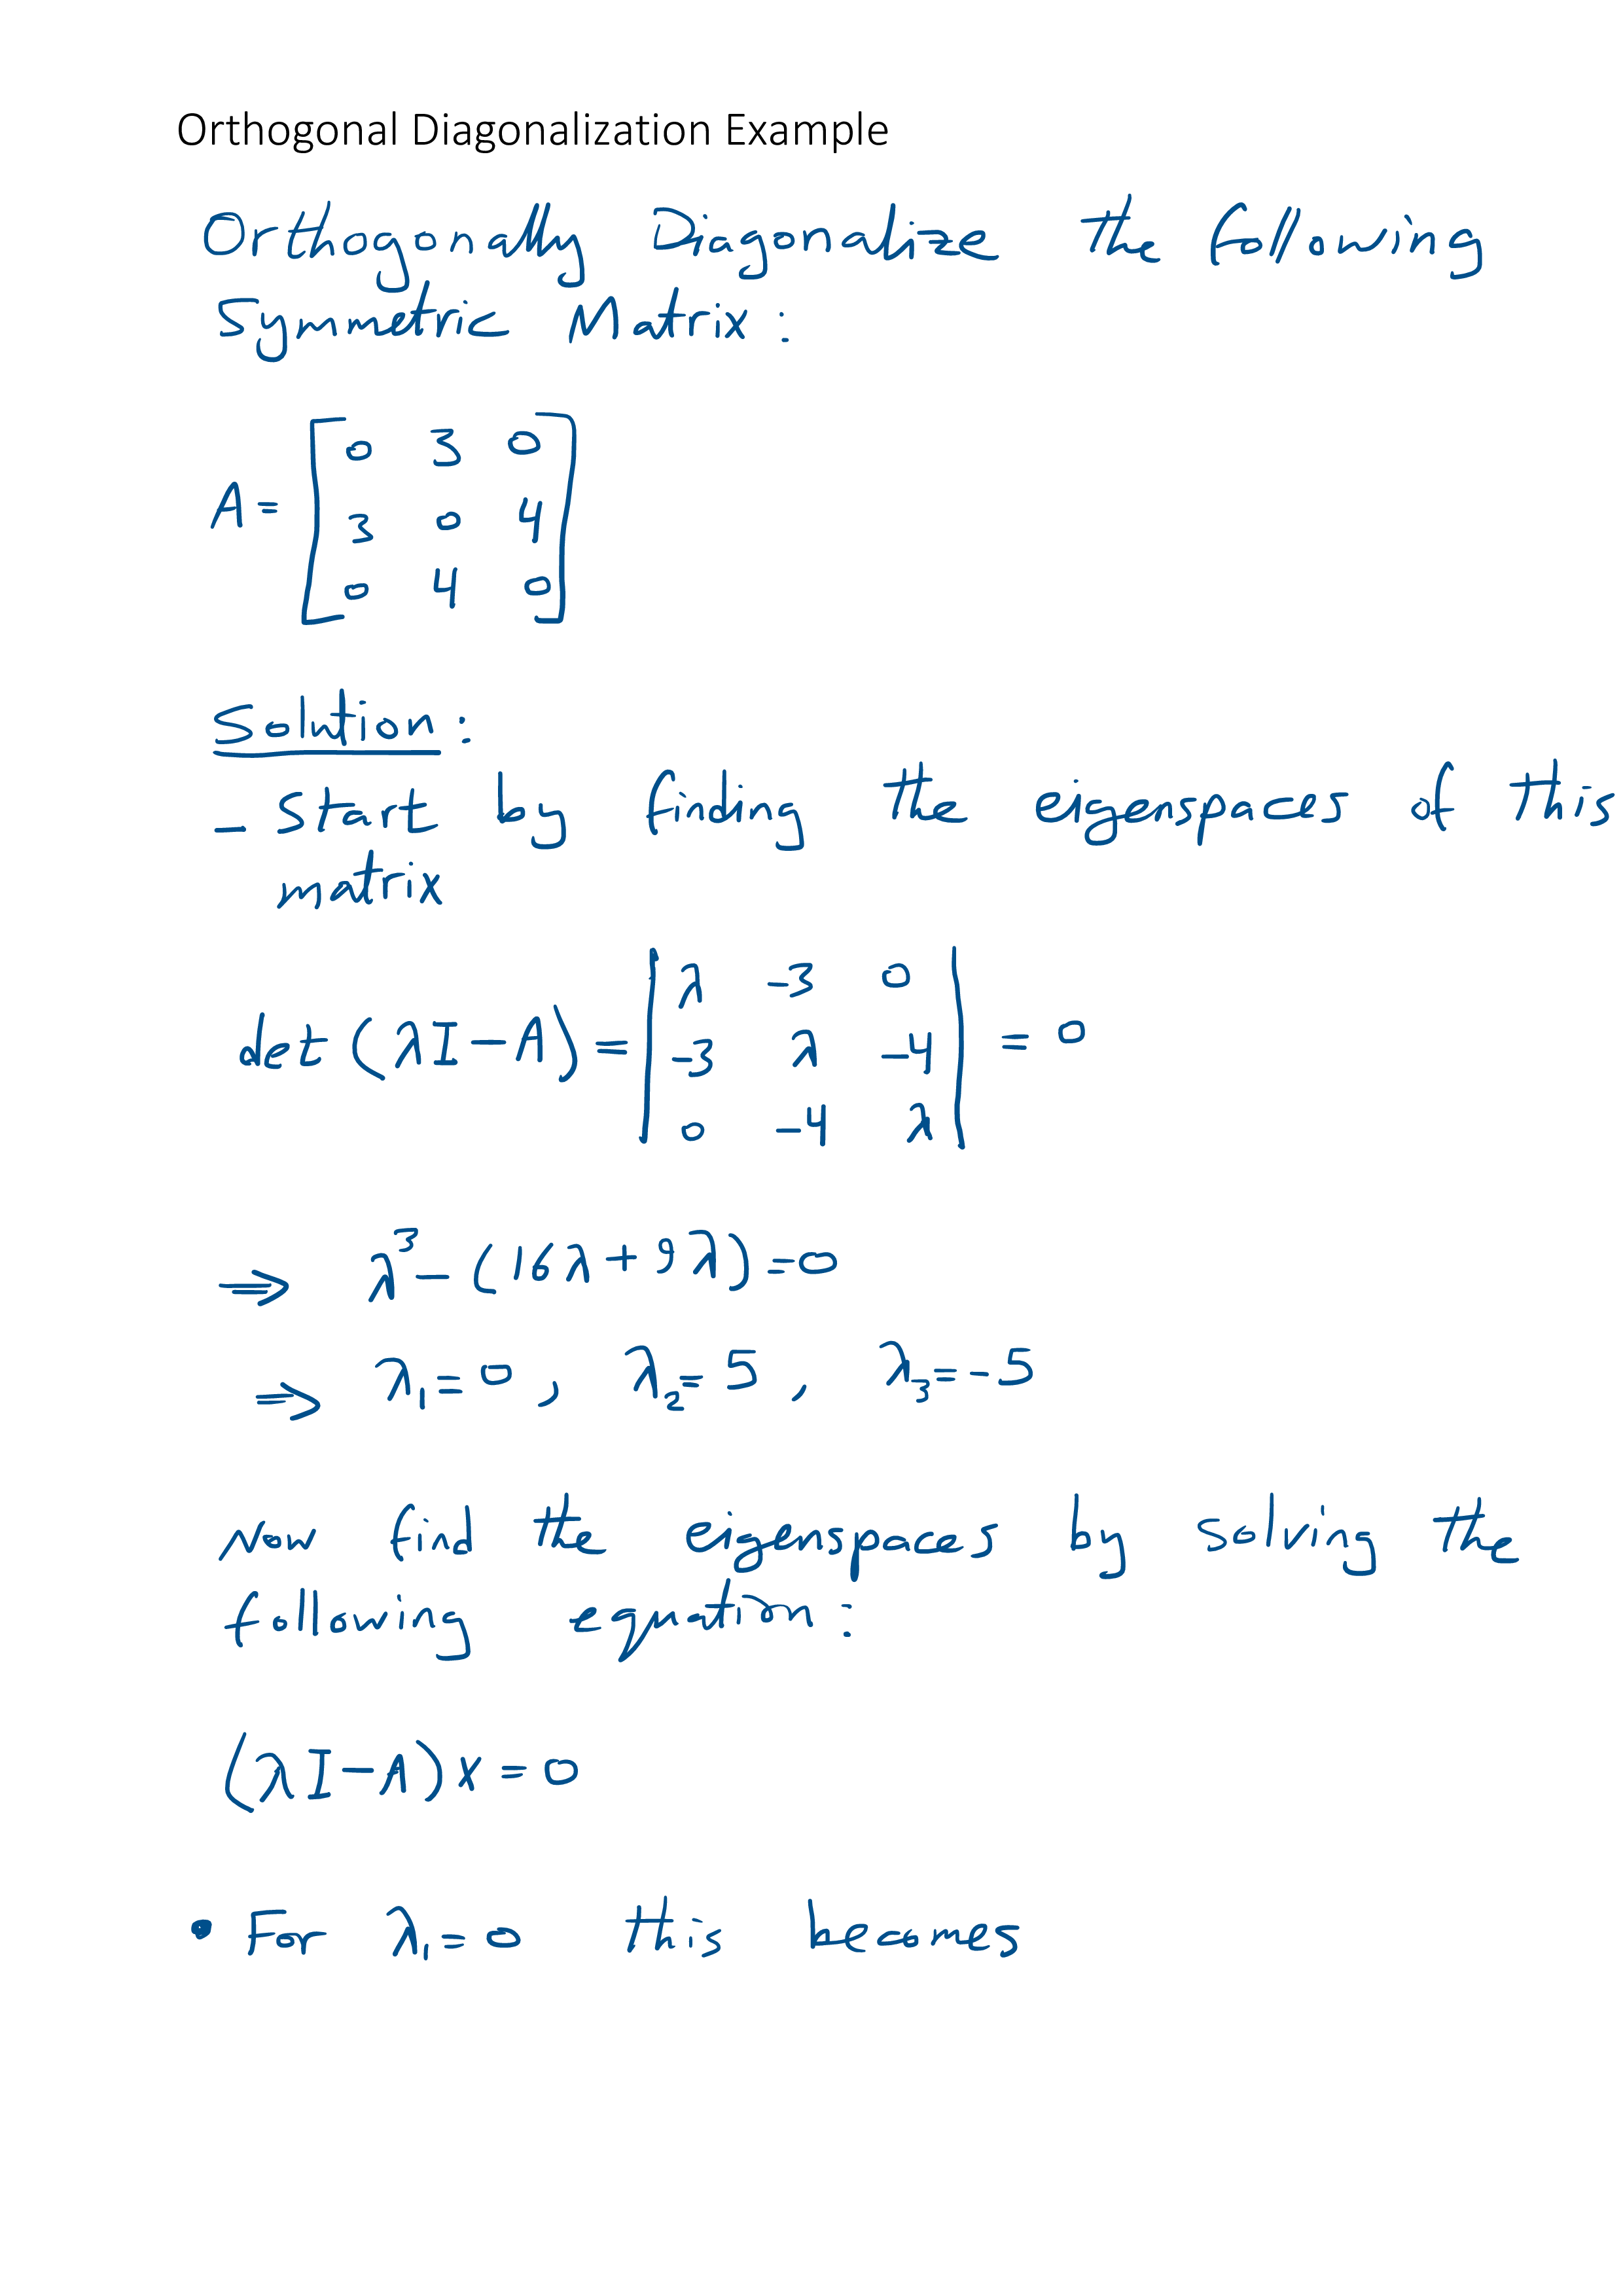 Orthogonal Diagonalization Example
Orthogonally Diagonalize the following
Symmetric Matrix:
A = [ 0 3 0
3 0 4
0 4 0 ]
Solution:
- Start by finding the eigenspaces of this
matrix
det (λI - A) = | λ -3 0
-3 λ -4
0 -4 λ | = 0
⇒ λ³ - (16λ + 9λ) = 0
⇒ λ₁ = 0, λ₂ = 5, λ₃ = -5
Now find the eigenspaces by solving the
following equation:
(λI - A)x = 0
• For λ₁ = 0 this becomes